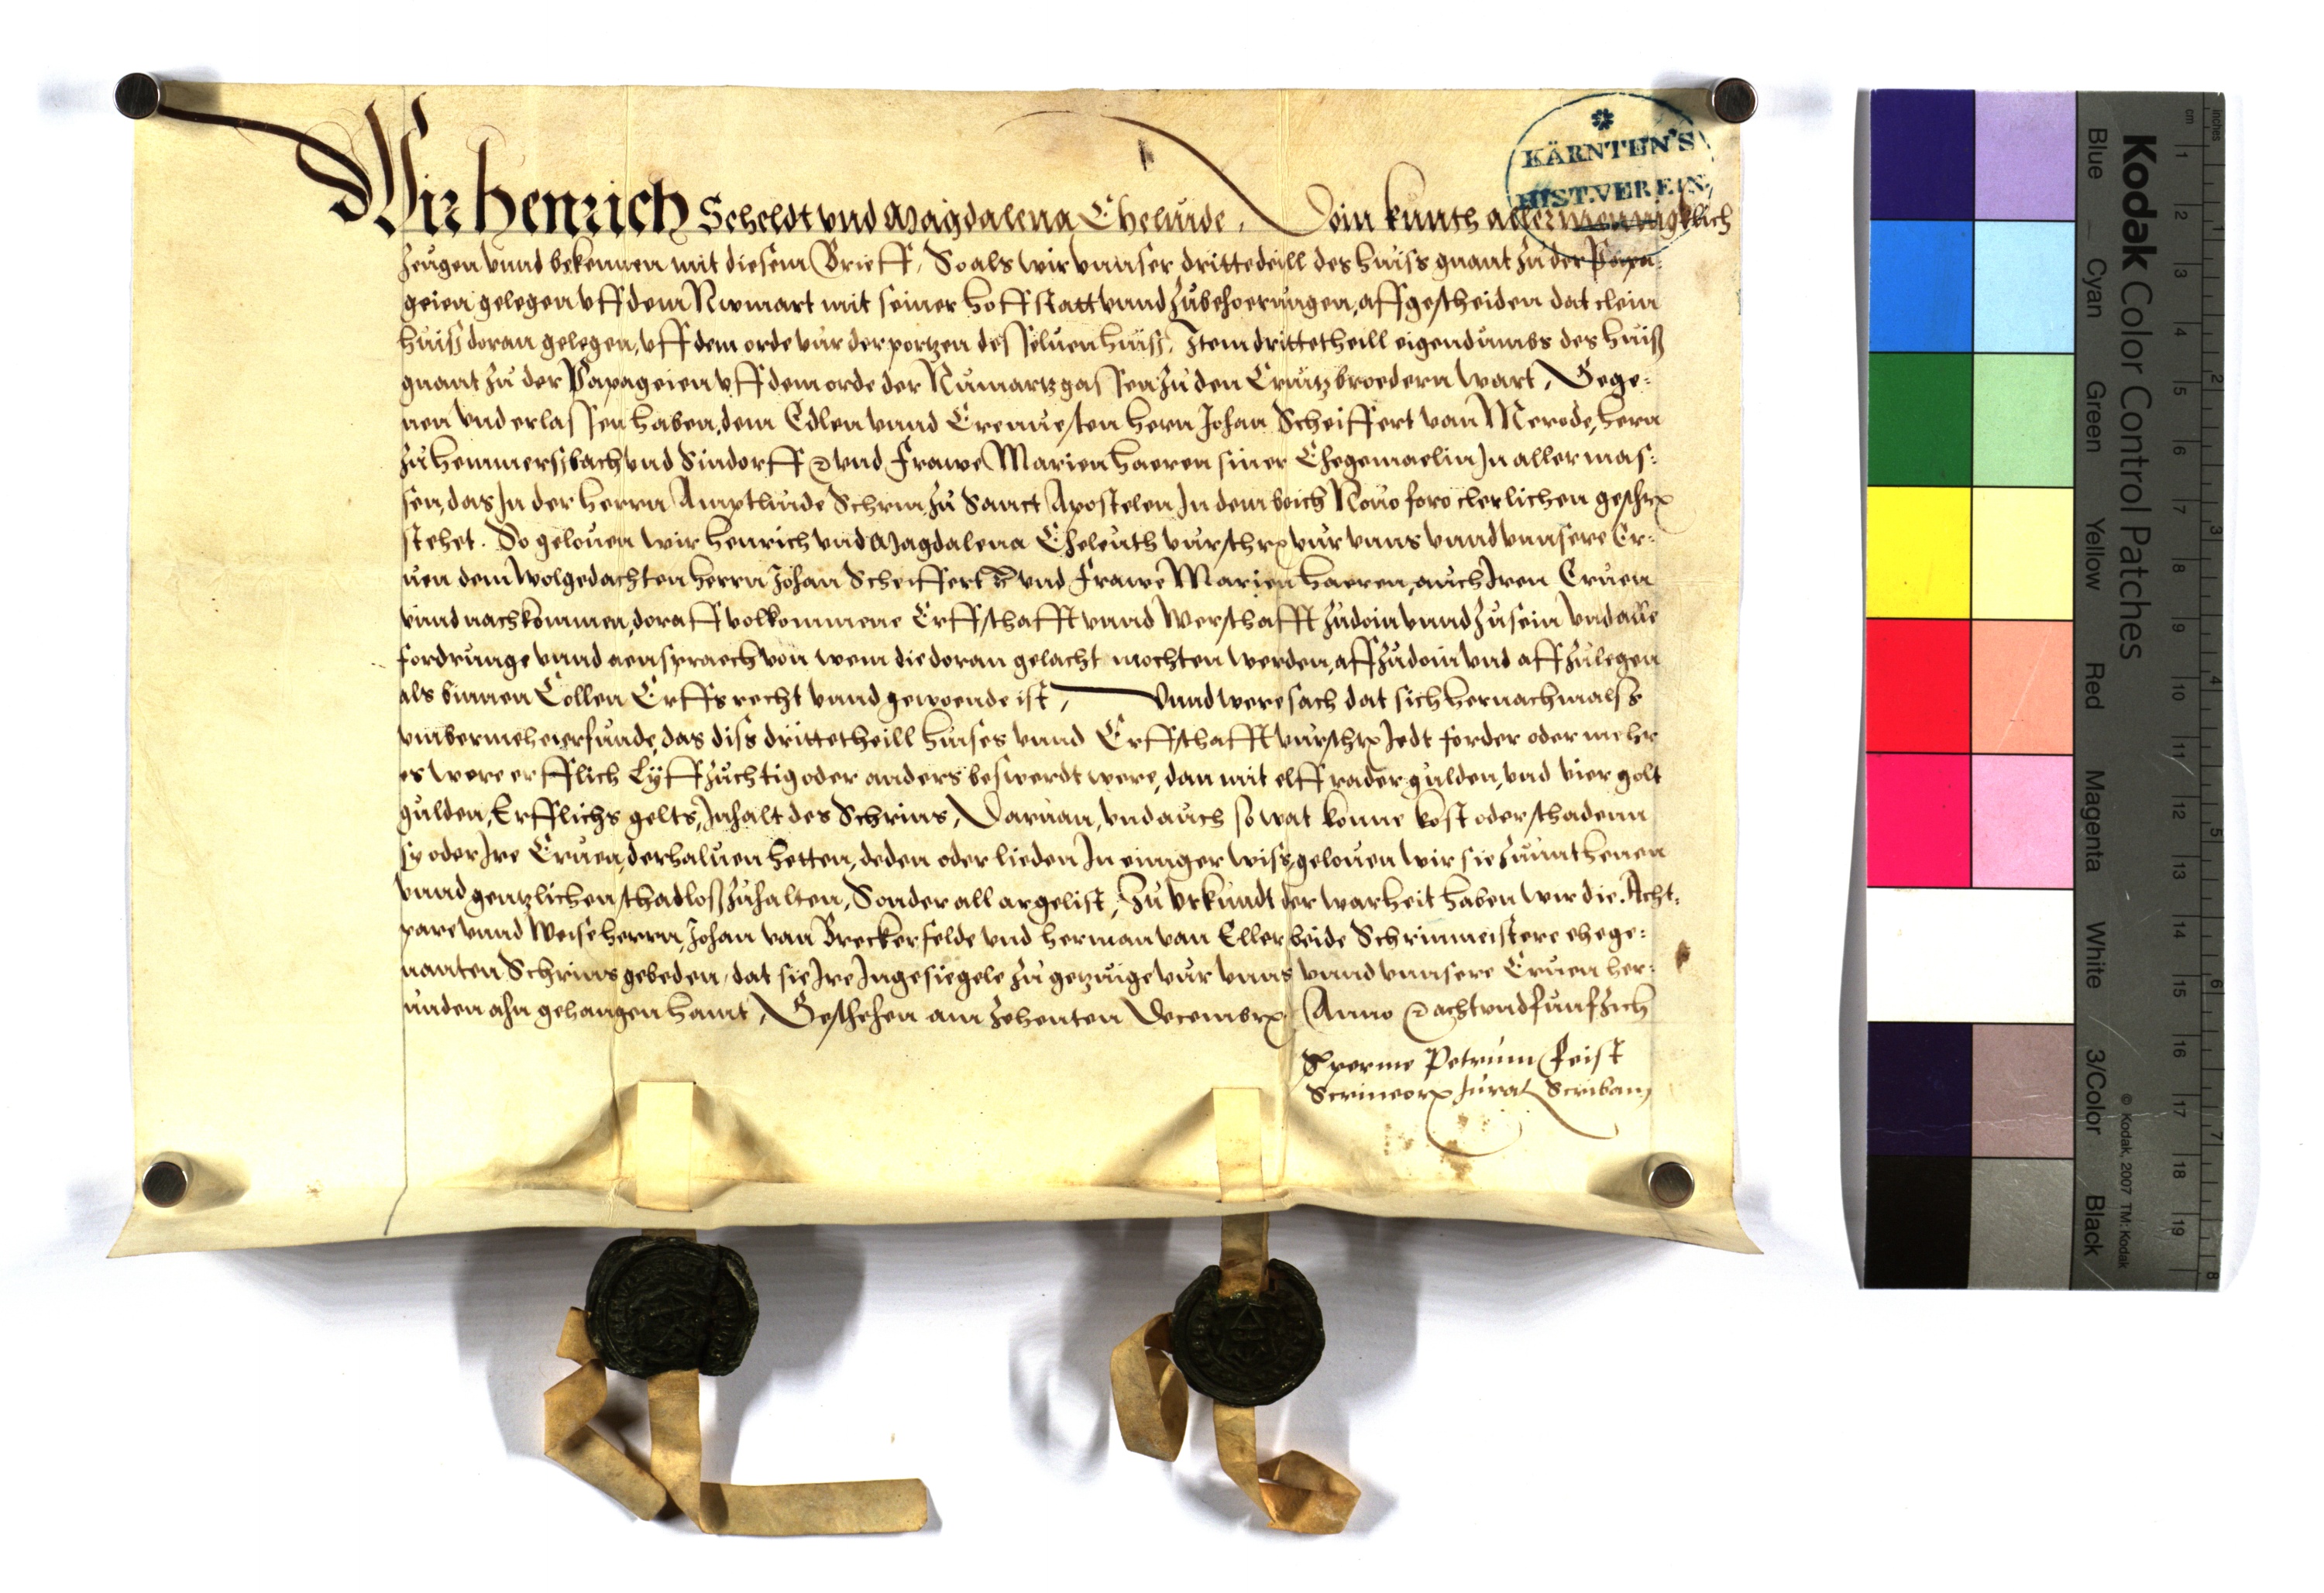 Wir Henrich Scheldt vnd Magdalena Ehelude, Doin kunth allermenniglich
zeugen vnnd bekennen mit diesem Brieff, So als wir vnnser drittedeill des huiss gnant zu der Papa-
geien gelegen vff dem Numart mit seiner hoffstatt vnnd zubehoerungen, affgescheiden dat clein
huiss doran gelegen, vff dem orde vur der portzen des seluen huiss, Item drittetheill eigendumbs des huiß
gnant zu der Papageien vff dem orde der Numartzgassen zu den Crutzbroedern wart, Gege-
uen vnd erlassen haben, dem Edlen vnnd Erenuesten hern Johan Scheiffert van Merode, hern
zu hemmerssbach vnd Sindorff vnd Frawe Marien haeren siner Ehegemaelin In aller mas-
sen, das In der herrn Amptlude Schrin zu Sanct Apostelen In dem boich Nouo foro clerlichen geschr
stehet. So gelouen wir henrich vnd Magdalena Eheleuth vurschr vur vnns vnnd vnnsere Er-
uen dem wolgedachten herrn Johan Scheiffert vnd Frawe Marien haeren, auch Iren Eruen
vnnd nachkommen, doraff volkommene Erffschafft vnnd Werschafft zudoin vnnd zusein vnd alle
fordrunge vnnd aenspraech von wem die doran gelacht mochten werden, aff zudoin vnd aff zulegen
als binnen Collen Erffs recht vnnd gewoende ist, Vnnd were sach dat sich hernachmalss
vmbermehe erfunde, das diss drittetheill huises vnnd Erffschafft vurschr Iedt forder oder mehr
es were erfflich Lyffzuchtig oder anders beswerdt were, dan mit elff rader gulden, vnd vier golt
gulden, Erfflichs gelts, Inhalt des Schrins, Daruan, vnd auch so wat konne kost oder schadenn
sy oder Ire Eruen, derhaluen hetten, deden oder lieden In einiger wiss, gelouen wir sie zu unthenen
vnnd gentzlichen schadloß zuhalten, Sonder all argelist, Zu vrkundt der warheit haben wir die Acht-
pare vnnd Weise herrn, Johan van Breckerfelde vnd herman van Eller beide Schrinmeistere ehege-
nanten Schrins gebeden, dat sie Ire Ingesiegele zu getzuige vur vnns vnnd vnnsere Eruen her-
unden ahn gehangen haint, Geschehen am zehenten Decembr Anno achtvndfunfzich
P perme Petrum Feist
Scrineor jurat Scribam
KÄRNTEN'S
HIST.VEREIN
Kodak Color Control Patches
Blue Cyan Green Yellow Red Magenta White 3/Color Black
© Kodak, 2007 TM: Kodak
inches 1 2 3 4 5 6 7 8
cm 1 2 3 4 5 6 7 8 9 10 11 12 13 14 15 16 17 18 19